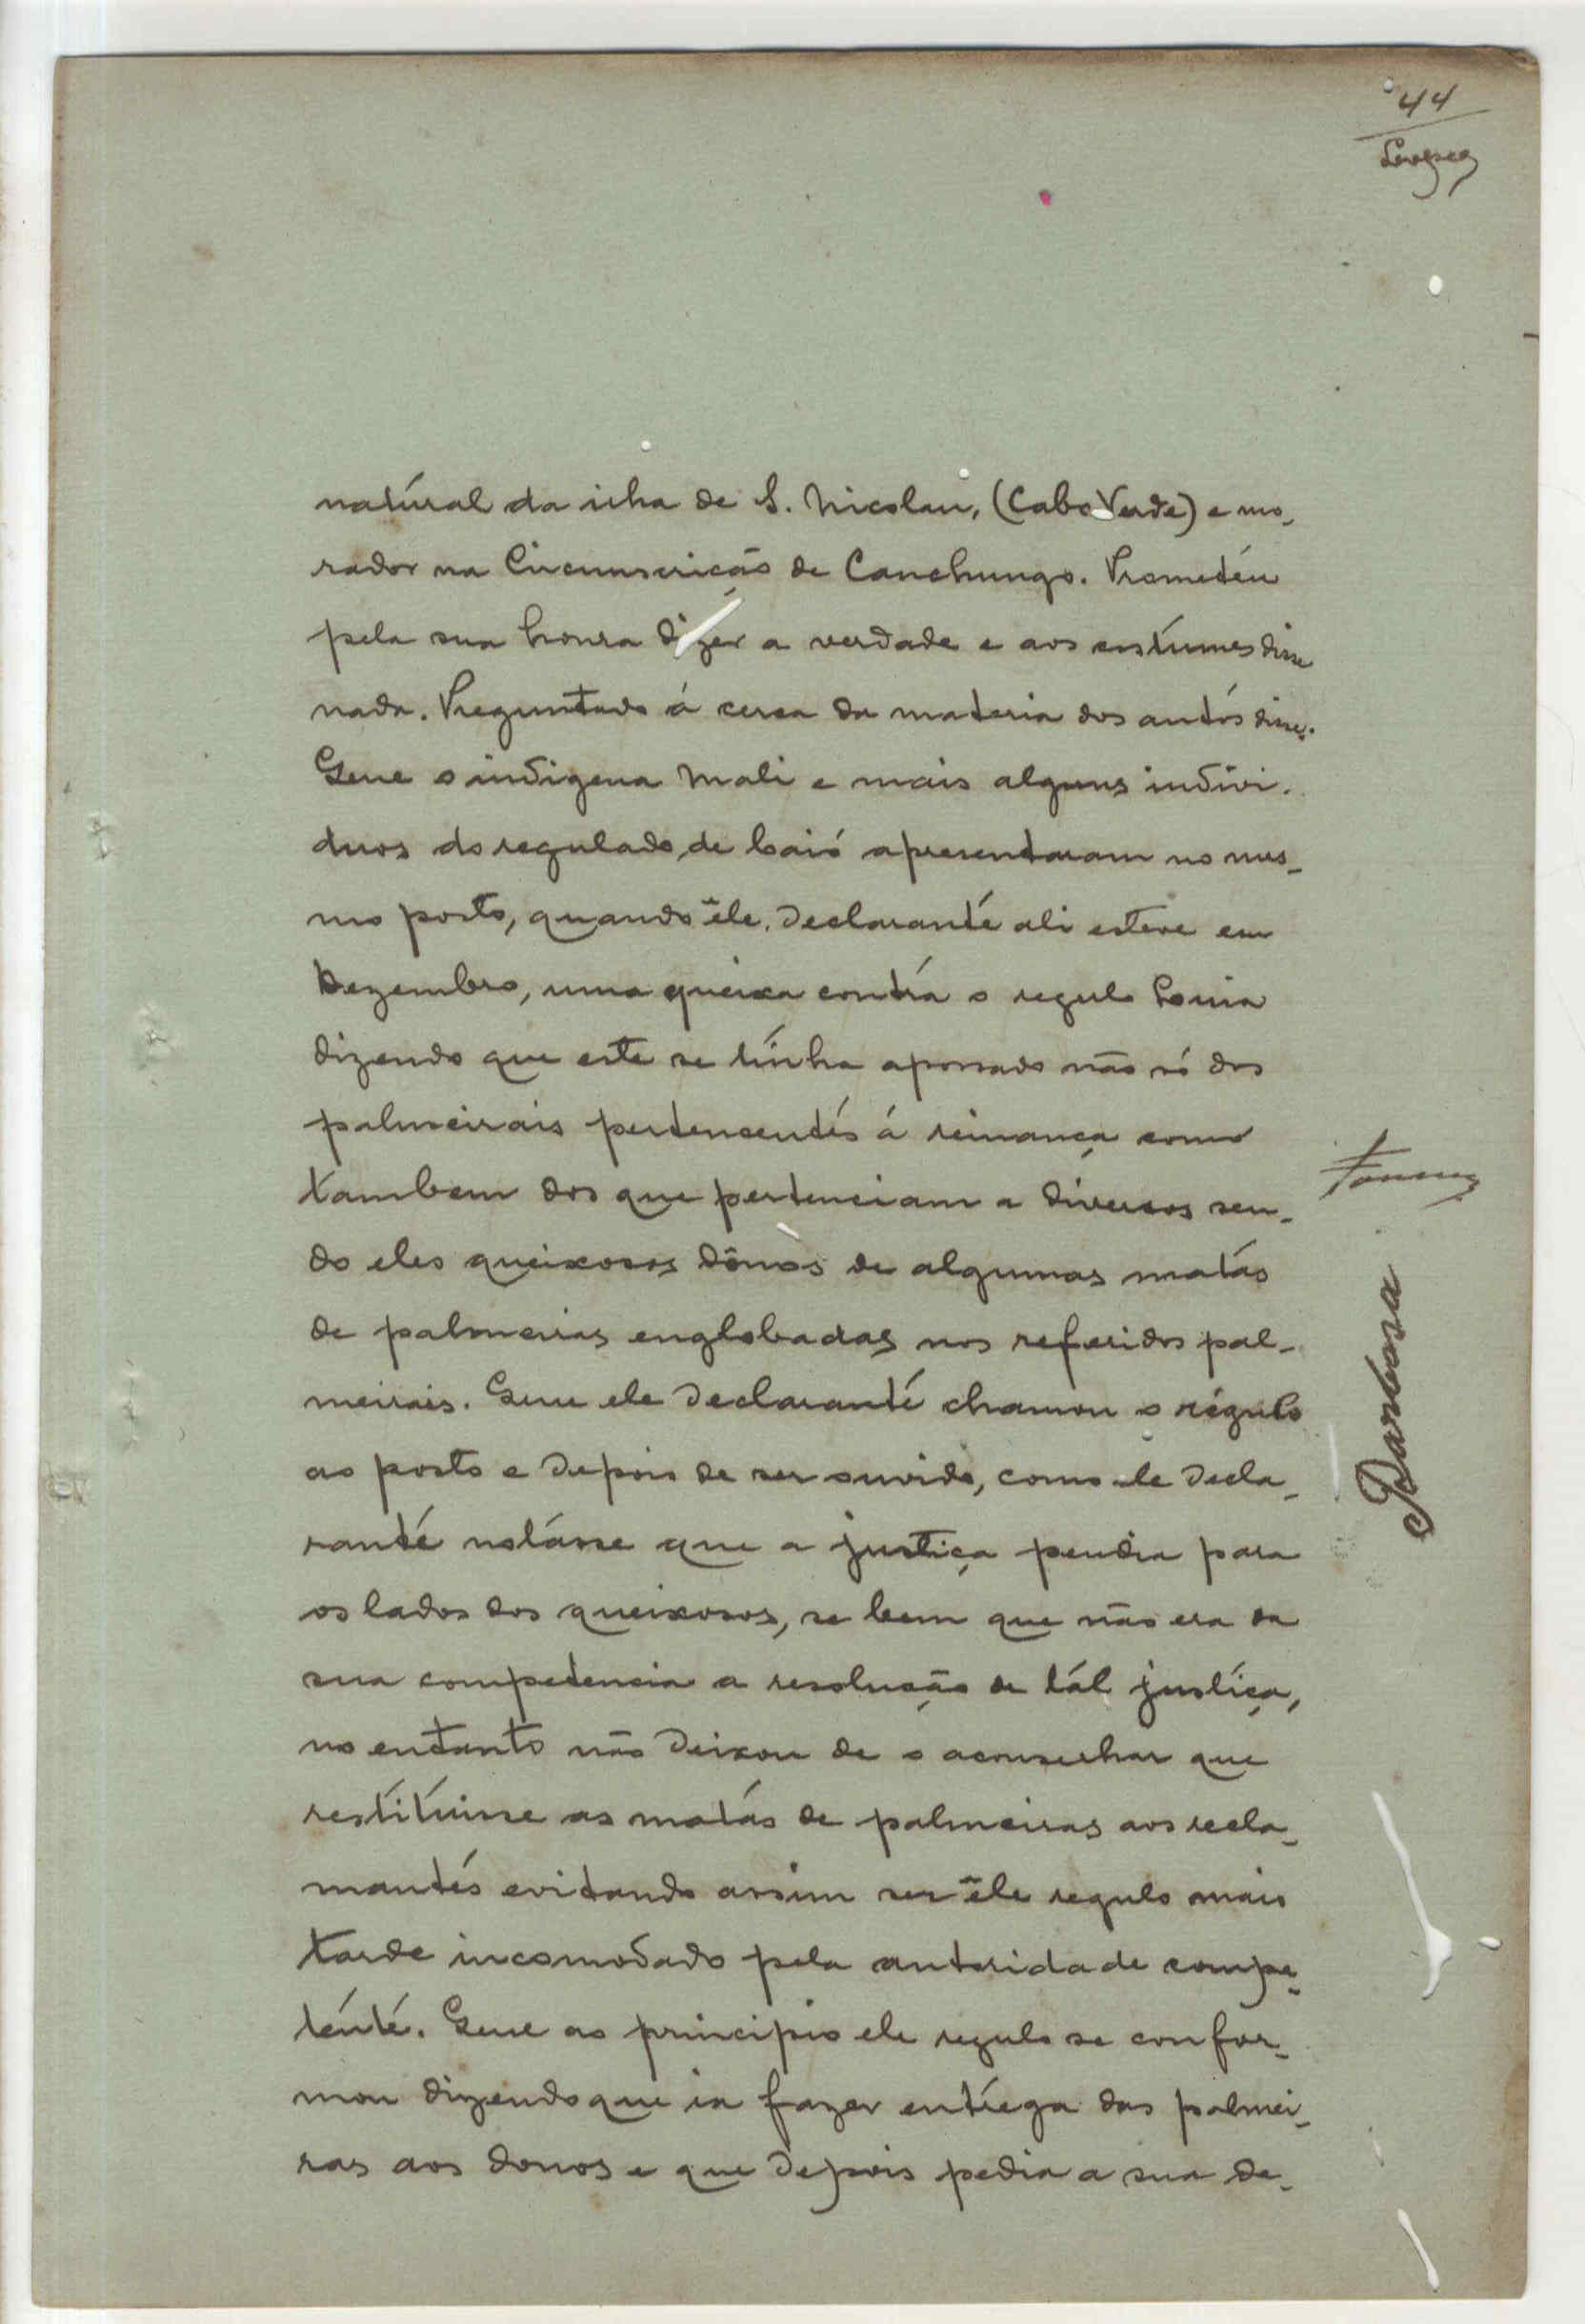 44
natural da ilha de S. Nicolau, (Cabo Verde) e mo-
rador na Circunscrição de Canchungo. Prometeu
pela sua honra dizer a verdade e aos costumes disse
nada. Preguntado á cerca da materia dos autos disse:
Que o indigena Mali e mais alguns indivi-
duos do regulado de Caió apresentaram no mes-
mo posto, quando êle declarante ali esteve em
Dezembro, uma queixa contra o regulo
dizendo que este se tinha apossado não só dos
palmeirais pertencentes á reinança como
tambem dos que pertenciam a diversos sen-
do eles queixosos dônos de algumas matas
de palmeiras englobadas nos referidos pal-
meirais. Que ele declarante chamou o régulo
ao posto e depois de ser ouvido, como ele decla-
rante notasse que a justiça pendia para
os lados dos queixosos, se bem que não era da
sua competencia a resolução de tal justiça,
no entanto não deixou de o aconselhar que
restituisse as matas de palmeiras aos recla-
mantes evitando assim ser êle regulo mais
tarde incomodado pela autoridade compe-
tente. Que ao principio ele regulo se confor-
mou dizendo que ia fazer entrega das palmei-
ras aos donos e que depois pedia a sua de-
Barbosa